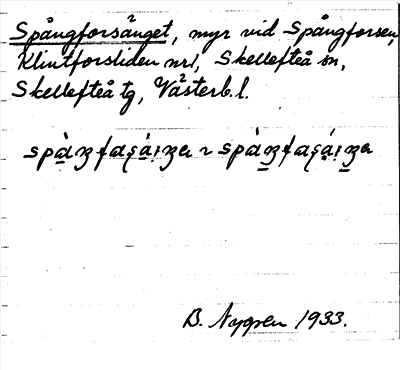 Spångforsänget, myr vid Spångforsen,
Klintforsliden nr 1, Skellefteå sn,
Skellefteå tg, Västerb. l.
B. Nygren 1933.